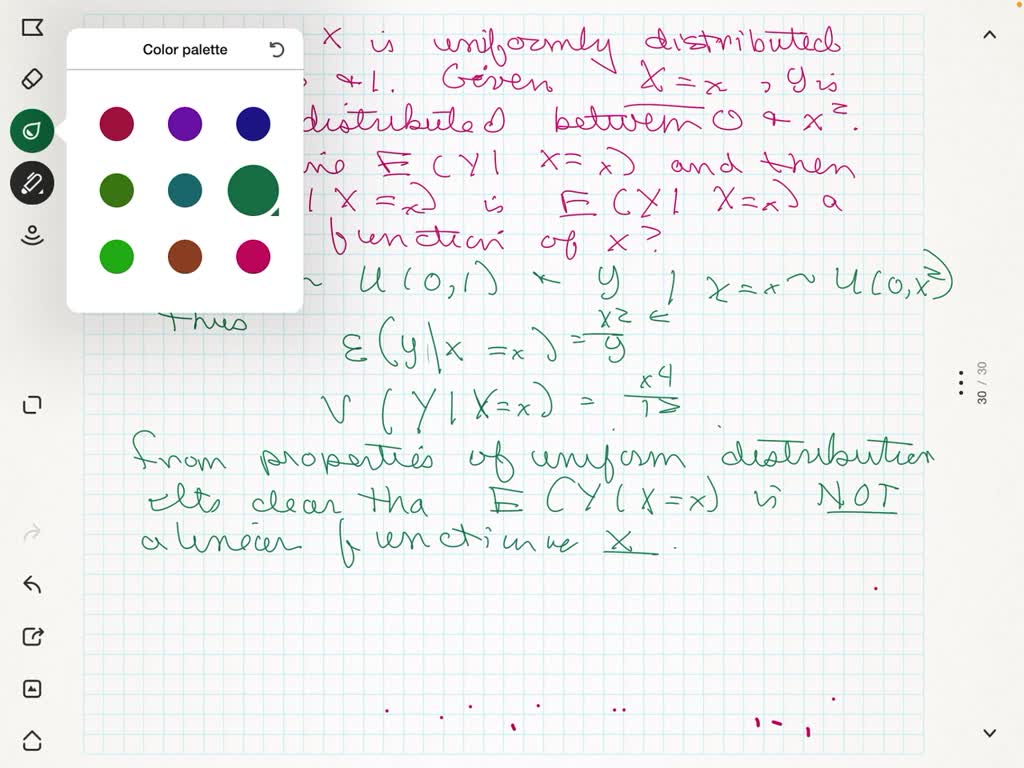 Color palette
X is uniformly distributed
& 1. Given X = x , y is
distributed between 0 & x².
E (Y | X = x) and then
| X = x) is E (Y | X = x) a
function of x?
~ U(0,1) & y | x = x ~ U(0,x²)
Thus
E(y|x = x) = x²/y
V (Y | X = x) = x⁴/12
from properties of uniform distribution
clear tha E (Y | X = x) is NOT
a linear x.
30 / 30